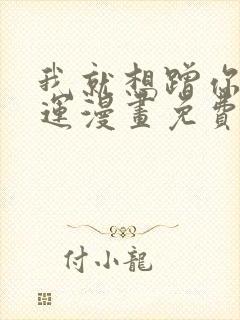 我就想蹭你
運漫畫免費
付小龍